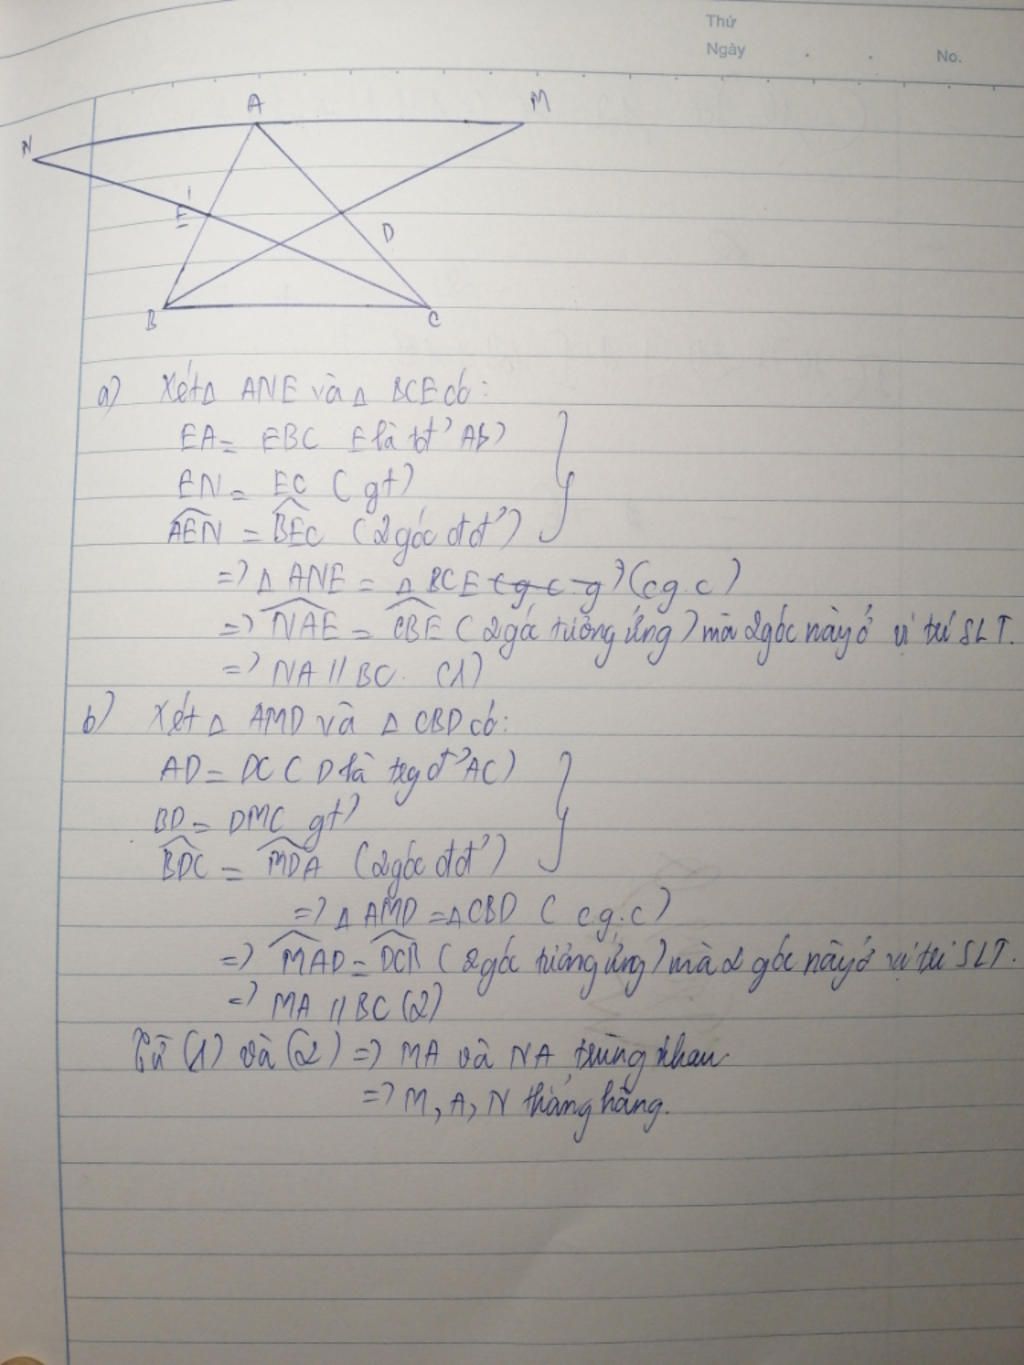 Thứ
Ngày . . No.
A M
N
E
D
B C
a) Xét Δ ANE và Δ BCE có:
EA = EB ( E là tđ' AB)
EN = EC ( gt)
AEN = BEC (2 góc đđ')
=> Δ ANE = Δ BCE (g c g) (c g.c)
=> NAE = CBE ( 2 góc tương ứng ) mà 2 góc này ở vị trí SLT.
=> NA // BC. (1)
b) Xét Δ AMD và Δ CBD có:
AD = DC ( D là trg đ' AC)
BD = DM( gt)
BDC = MDA (2 góc đđ')
=> Δ AMD = Δ CBD ( c g.c )
=> MAD = DCB ( 2 góc tương ứng ) mà 2 góc này ở vị trí SLT.
=> MA // BC (2)
Từ (1) và (2) => MA và NA trùng nhau.
=> M, A, N thẳng hàng.